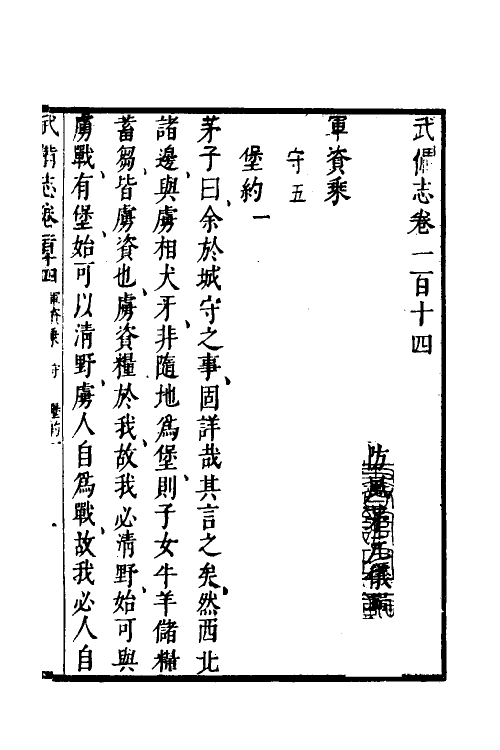 武備志卷一百十四
防風茅元儀輯
軍資乘
守五
堡約一
茅子曰余於城守之事固詳哉其言之矣然西北
諸邊與虜相犬牙非隨地爲堡則子女牛羊儲糧
蓄芻皆虜資也虜資糧於我故我必清野始可與
虜戰有堡始可以清野虜人自爲戰故我必人自
武備志卷百十四 軍資乘 守 堡約一